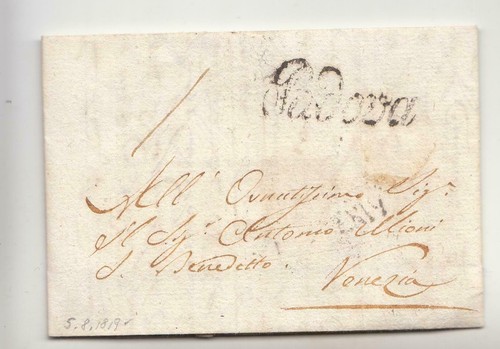 Padova
All' Ornatissimo Sigr.
Il Sigr. Antonio Mioni
S. Benedetto.
Venezia
5.8.1819